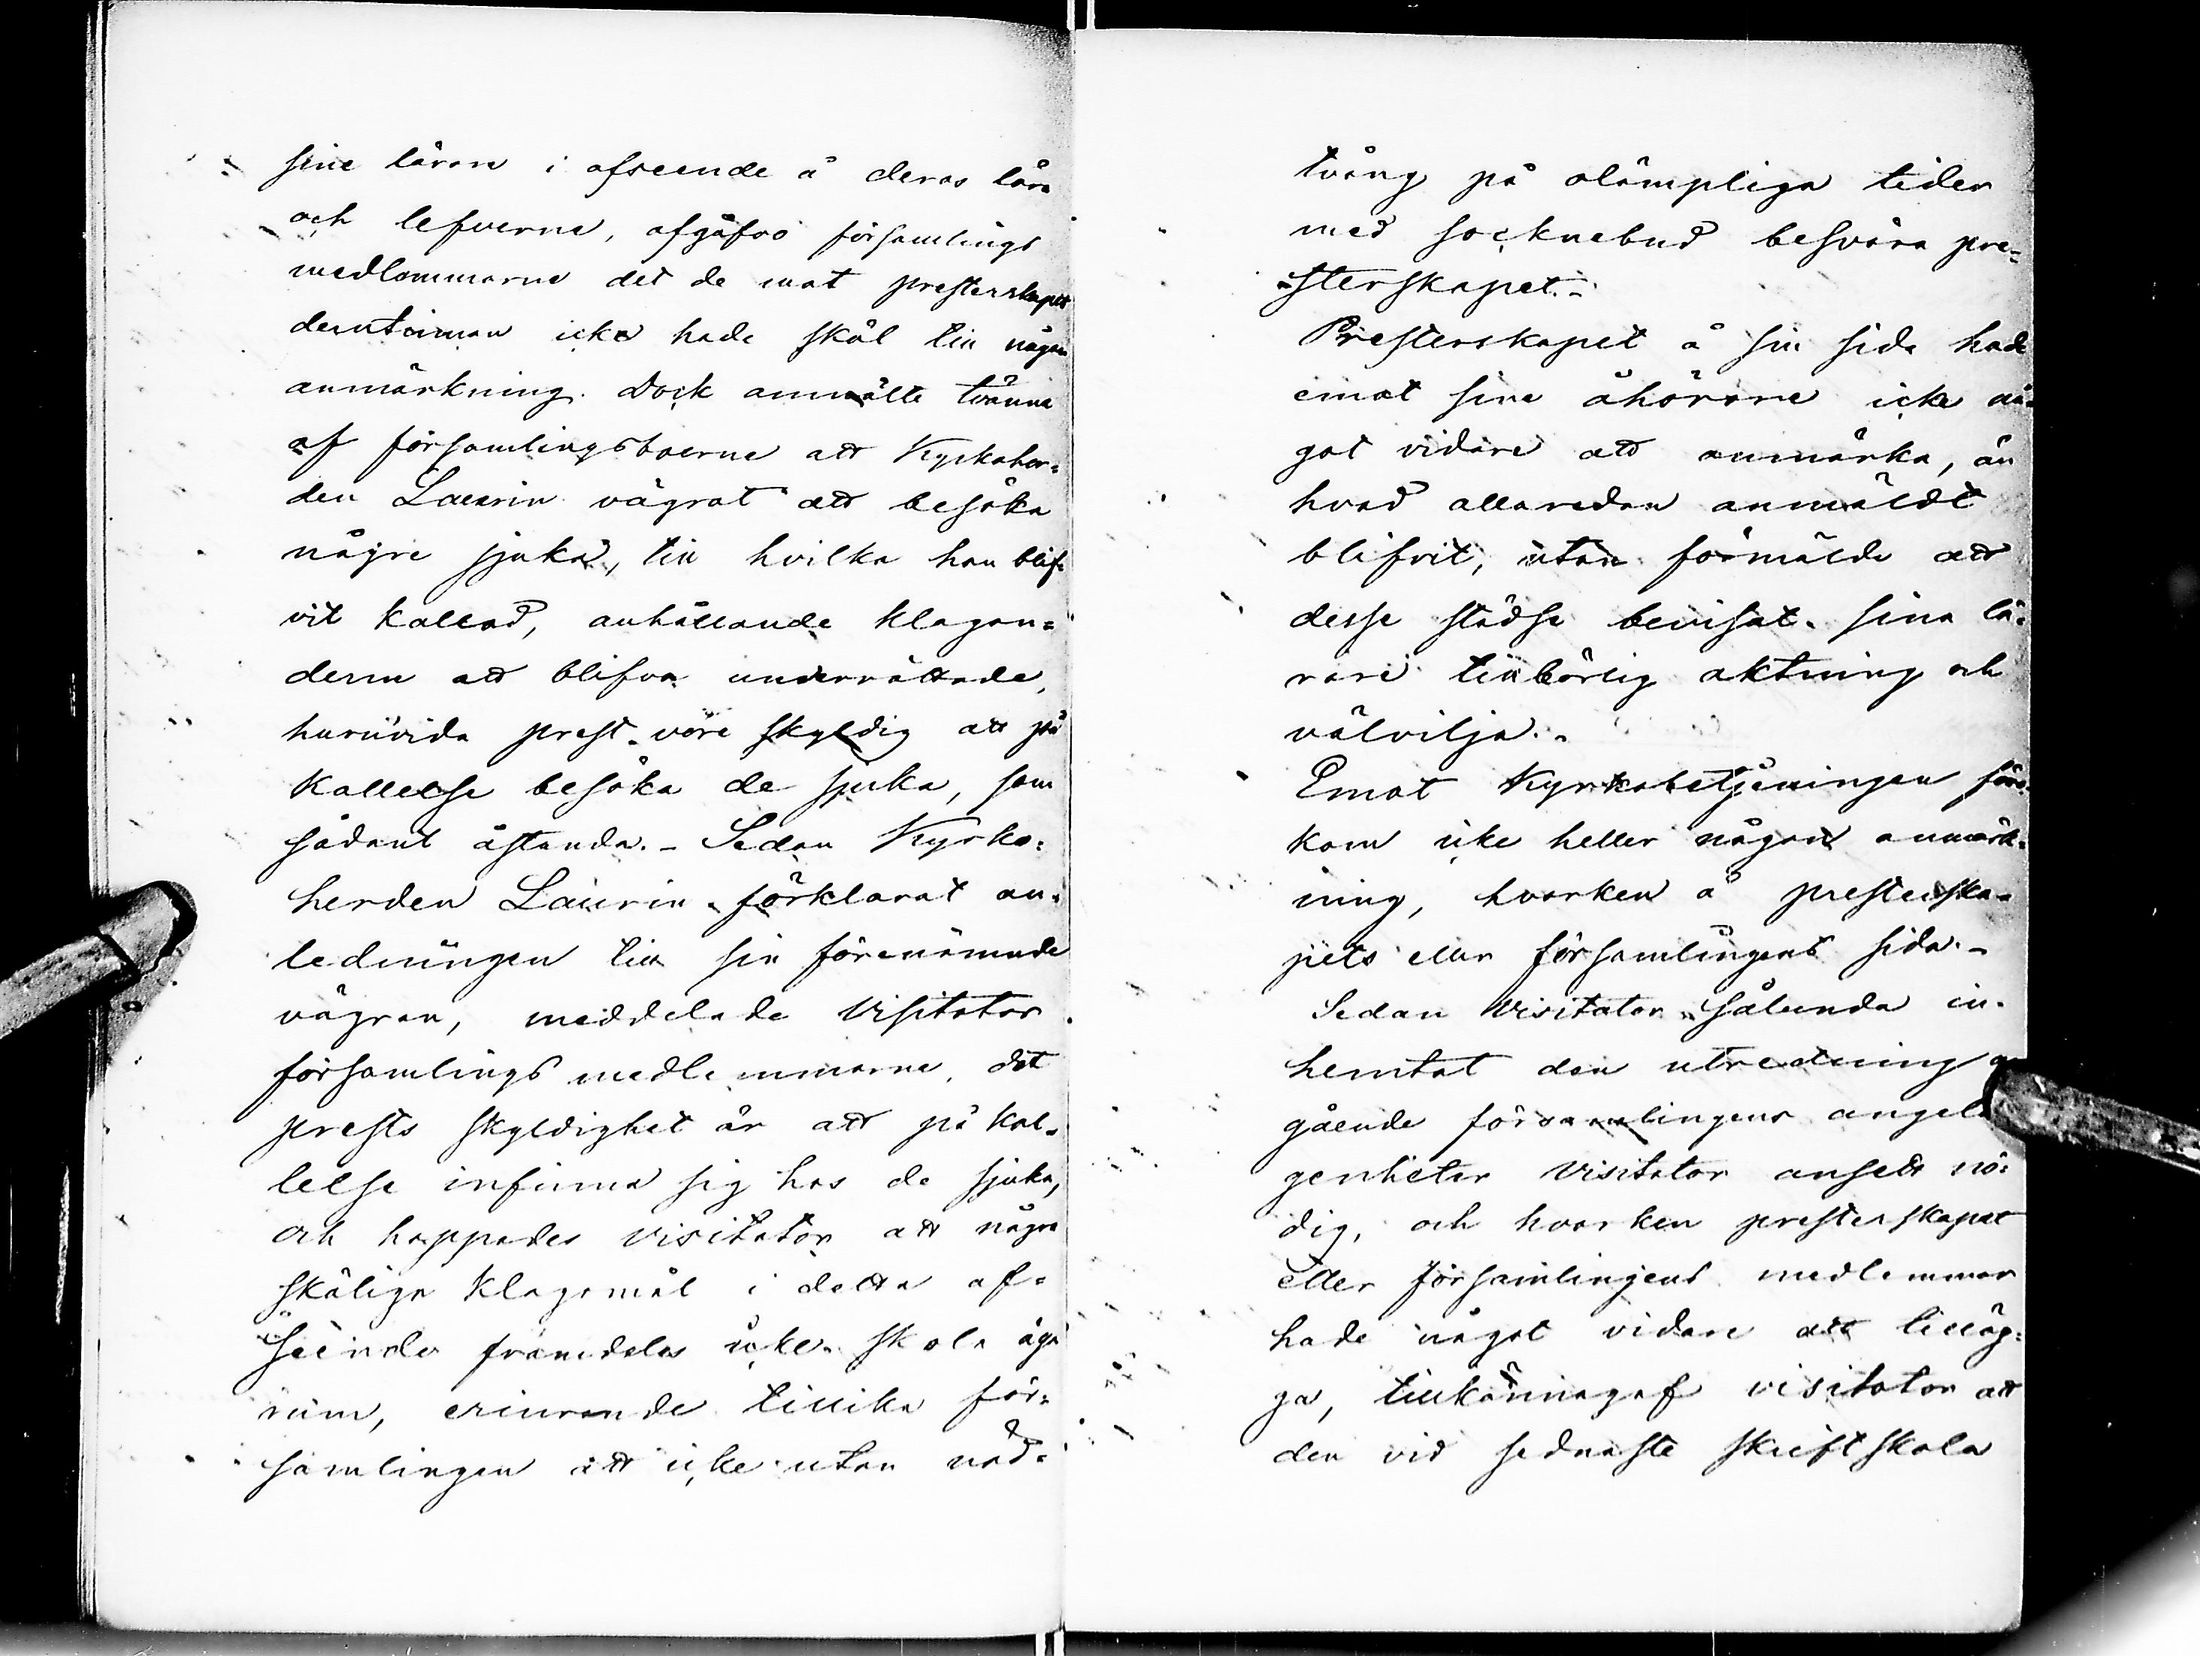 sine lärare i afseende å deras lära
och lefverne, afgåfvo församlings
medlemmarne det de mot presterskapet
derutinnan icke hade skäl till någon
anmärkning. Dock anmälte tvänne
af församlingsboerne att Kyrkoher=
den Laurin vägrat att besöka
någre sjuka, till hvilka han blif
vit kallad, anhållande klagan=
derne att blifva underrättade,
huruvida prest vore skyldig att på
kallelse besöka de sjuka, som
sådant åstunda. - Sedan Kyrko=
herden Laurin förklarat an=
ledningen till sin förenämnde
vägran, meddelade Visitator
församlings medlemmarne, det
prests skyldighet är att på kal=
lelse infinna sig hos de sjuka,
och hoppades visitator att några
skälige klagomål i detta af=
seende framdeles icke skola äga
rum, erinrande tillika för=
samlingen att icke utan nöd=
tvång på olämpliga tider
med socknebud besvära pre=
sterskapet.-
Presterskapet å sin sida hade
emot sine åhörare icke nå=
got vidare att anmärka, än
hvad allaredan anmäldt
blifvit, utan förmälde att
desse städse bevisat sina lä=
rare tillbörlig aktning och
välvilja.-
Emot Kyrkobetjeningen före
kom icke heller någon anmärk=
ning, hvarken å presterska=
pets eller församlingens sida.-
Sedan Visitator sålunda in=
hemtat den utredning
gående församlingens angelä
genheter Visitator ansett nö=
dig, och hvarken presterskapet
eller församlingens medlemmar
hade något vidare att tilläg=
ga, tillkännagaf visitator att
den vid sednaste skriftskola